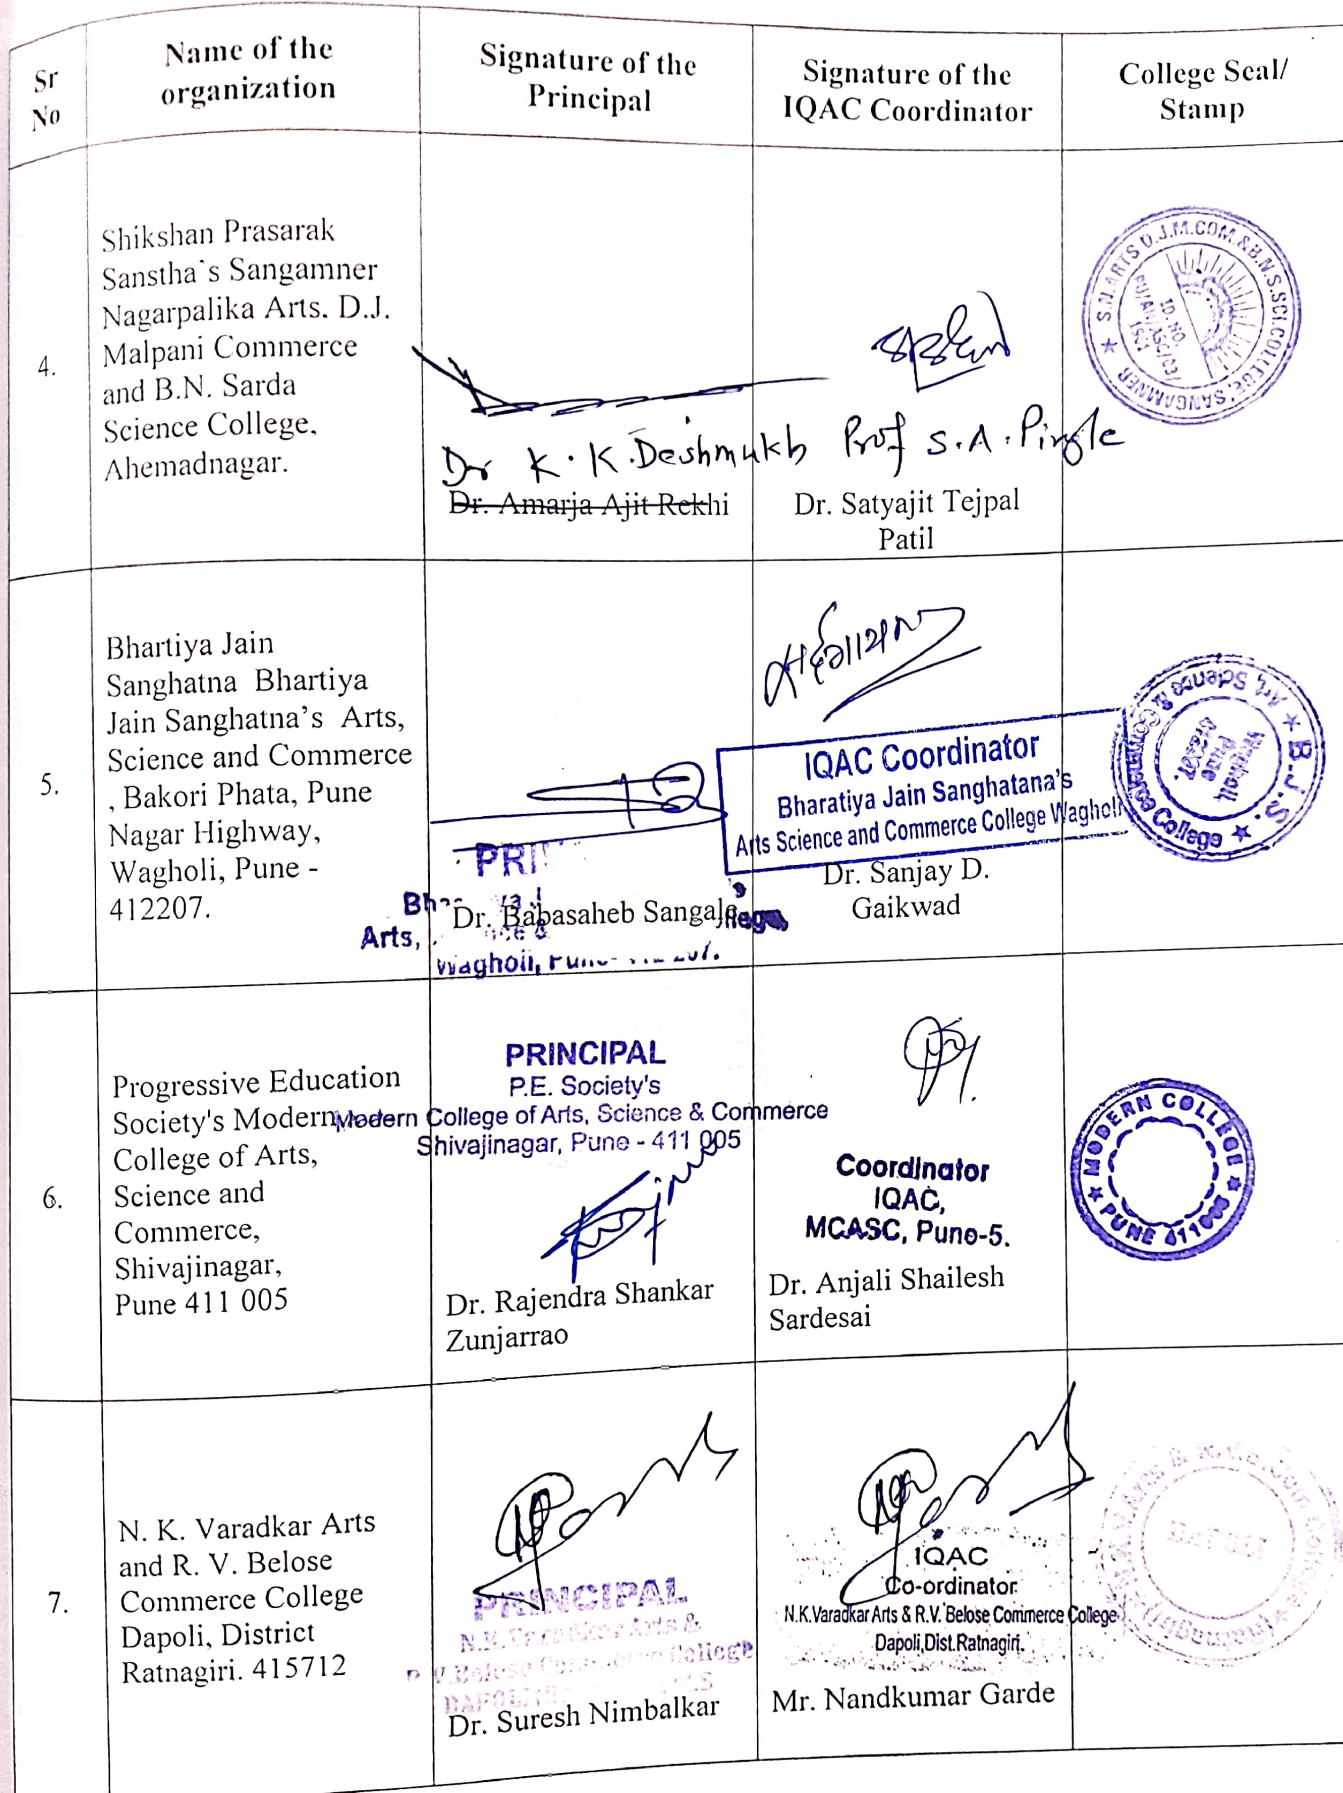 Sr
No
Name of the
organization
Signature of the
Principal
Signature of the
IQAC Coordinator
College Seal/
Stamp
4.
Shikshan Prasarak
Sanstha`s Sangamner
Nagarpalika Arts. D.J.
Malpani Commerce
and B.N. Sarda
Science College,
Ahemadnagar.
Dr K. K. Deshmukh
Dr. Amarja Ajit Rekhi
Prof S.A. Pingle
Dr. Satyajit Tejpal
Patil
★ S.N.ARTS D.J.M.COM.&B.N.S.SCI.COLLEGE, SANGAMNER
ID. NO.
5.
Bhartiya Jain
Sanghatna Bhartiya
Jain Sanghatna’s Arts,
Science and Commerce
, Bakori Phata, Pune
Nagar Highway,
Wagholi, Pune -
412207.
PRI
Dr. Babasaheb Sangale
Arts,
Wagholi,
IQAC Coordinator
Bharatiya Jain Sanghatana's
Arts Science and Commerce College Wagholi
Dr. Sanjay D.
Gaikwad
★ B.J.S. ★ College
Wagholi,
Pune
6.
Progressive Education
Society's Modern
College of Arts,
Science and
Commerce,
Shivajinagar,
Pune 411 005
PRINCIPAL
P.E. Society's
Modern College of Arts, Science & Commerce
Shivajinagar, Pune - 411 005
Dr. Rajendra Shankar
Zunjarrao
Coordinator
IQAC,
MCASC, Pune-5.
Dr. Anjali Shailesh
Sardesai
★ MODERN COLLEGE ★
PUNE 411005
7.
N. K. Varadkar Arts
and R. V. Belose
Commerce College
Dapoli, District
Ratnagiri. 415712
PRINCIPAL
N.K.Varadkar Arts &
R.V.Belose Commerce College
Dr. Suresh Nimbalkar
IQAC
Co-ordinator
N.K.Varadkar Arts & R.V. Belose Commerce College
Dapoli,Dist.Ratnagiri.
Mr. Nandkumar Garde
DAPOLI